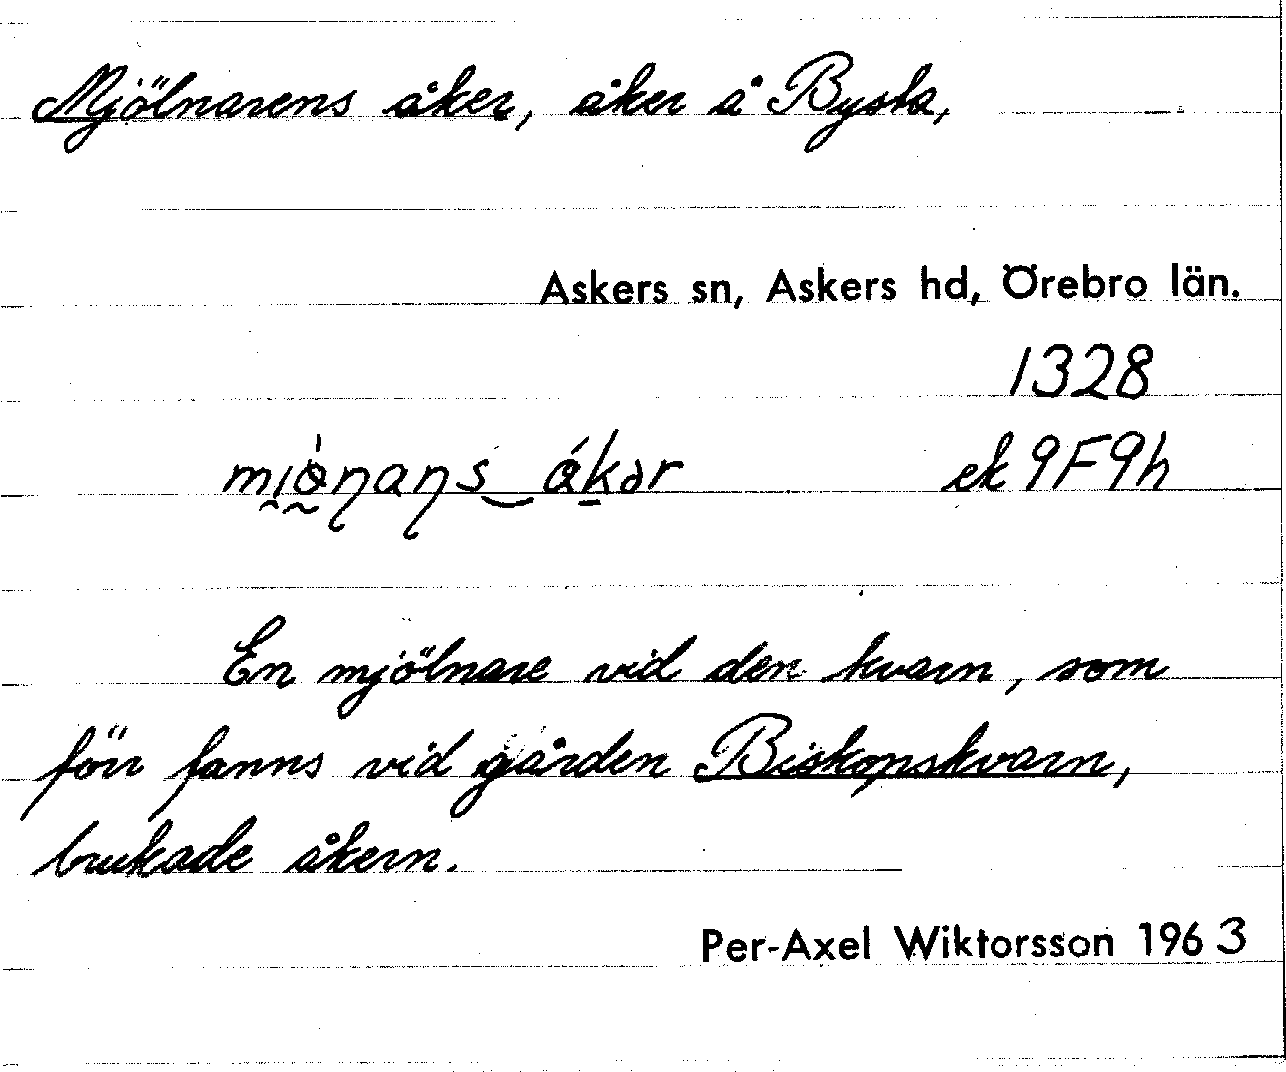 Mjölnarens åker, åker å Bysta,
Askers sn, Askers hd, Örebro län.
1328
ek 9F9h
En mjölnare vid den kvarn, som
förr fanns vid gården Biskopskvarn,
brukade åkern.
Per-Axel Wiktorsson 1963